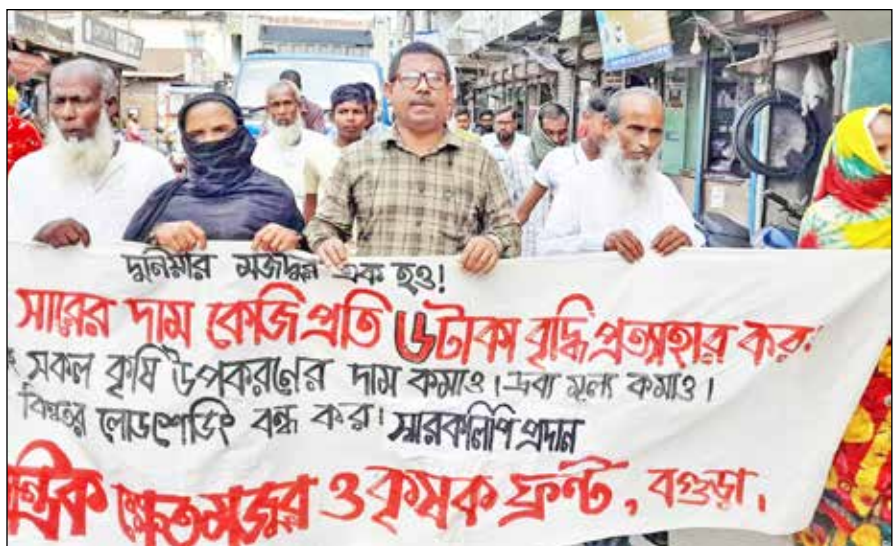 দুনিয়ার মজদুর এক হও!
সারের দাম কেজি প্রতি ৬ টাকা বৃদ্ধি প্রত্যাহার কর
সকল কৃষি উপকরণের দাম কমাও। দ্রব্য মূল্য কমাও।
লোডশেডিং বন্ধ কর। স্মারকলিপি প্রদান
ন্ত্রিক ক্ষেতমজুর ও কৃষক ফ্রন্ট, বগুড়া।